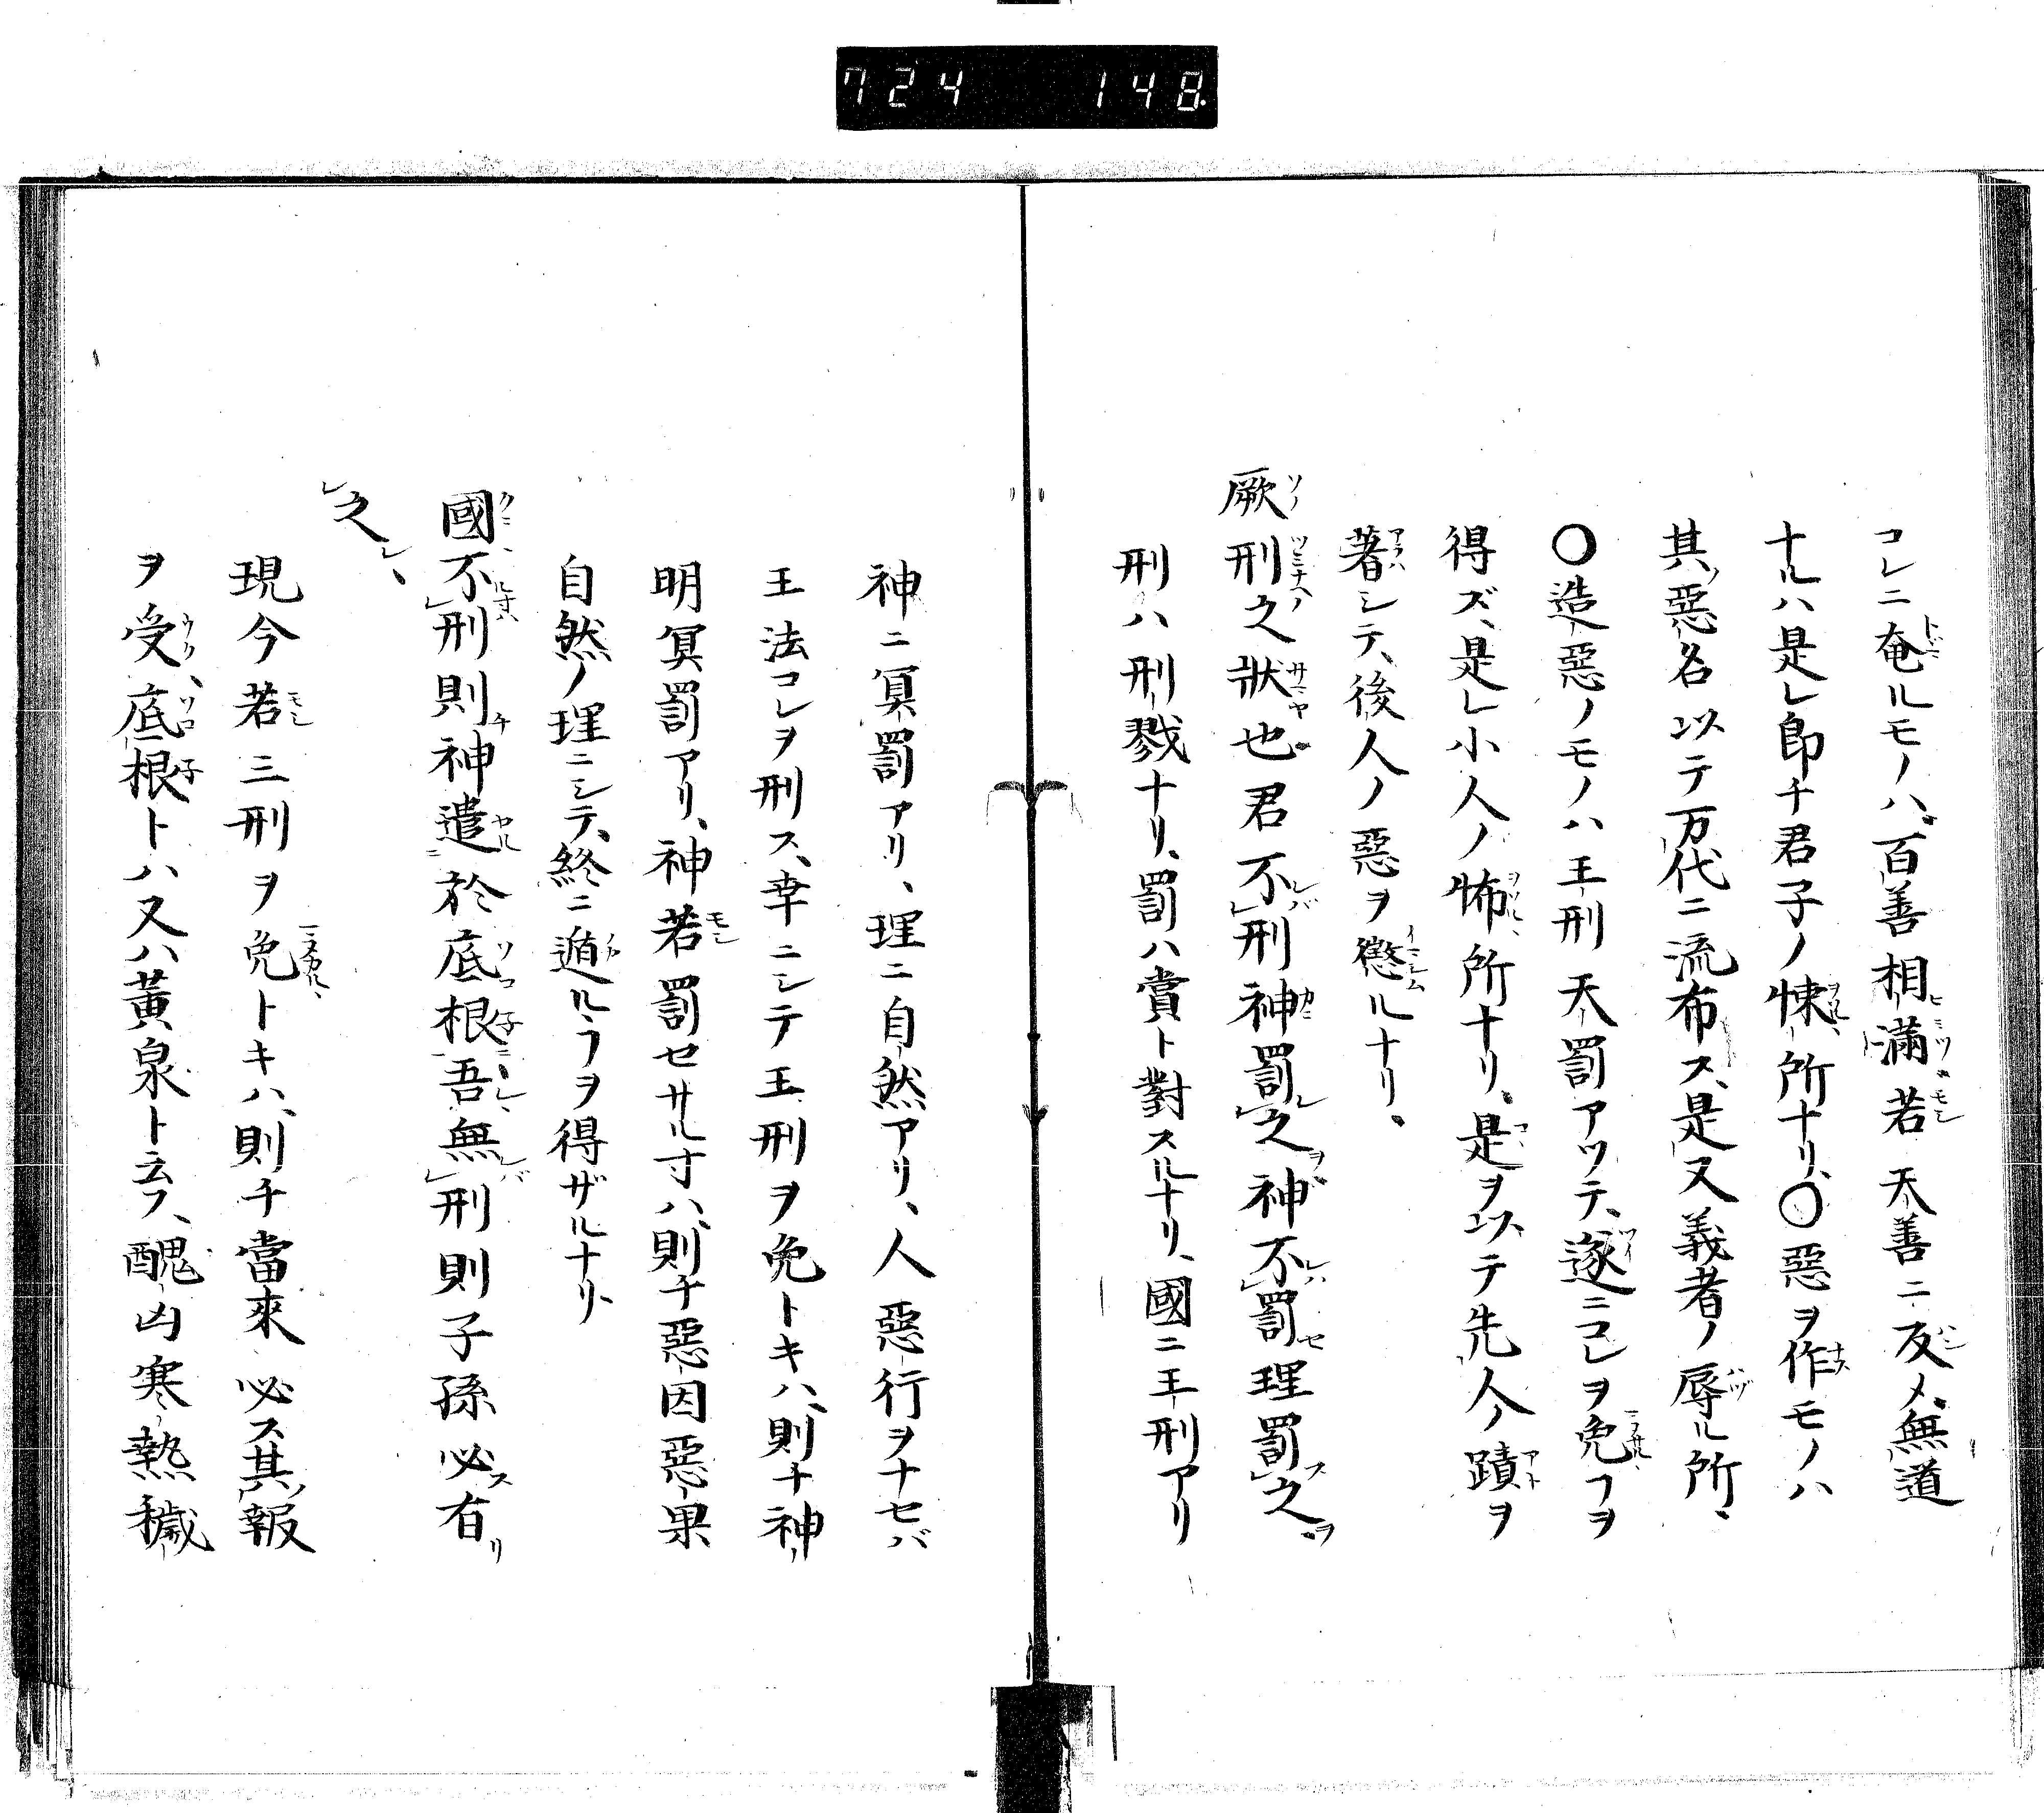 724 148.
コレニ奄ルモノハ、百善相滿若天善ニ反メ、無道
ナルハ是レ即チ君子ノ悚所ナリ、〇惡ヲ作モノハ
其ノ惡名以テ万代ニ流布ス、是又義者ノ辱ル所、
〇造惡ノモノハ王刑天罰アツテ、逐ニコレヲ免ヿヲ
得ズ、是レ小人ノ怖所ナリ、是ヲ以テ先人ノ蹟ヲ
著シテ、後人ノ惡ヲ懲ルナリ、
厥刑之狀也君不刑神罰之神不罰理罰之
刑ハ刑戮ナリ、罰ハ賞ト對スルナリ、國ニ王刑アリ
神ニ冥罰アリ、理ニ自然アリ、人惡行ヲナセバ
王法コレヲ刑ス、幸ニシテ王刑ヲ免トキハ、則チ神ノ
明冥罰アリ、神若罰セサル寸ハ、則チ惡因惡果
自然ノ理ニシテ、終ニ遁ルヿヲ得ザルナリ、
國不刑則神遣於底根吾無刑則子孫必有
之
現今若三刑ヲ免トキハ、則チ當來必ス其ノ報
ヲ受、底根トハ又ハ黃泉ト云フ、醜凶寒熱穢